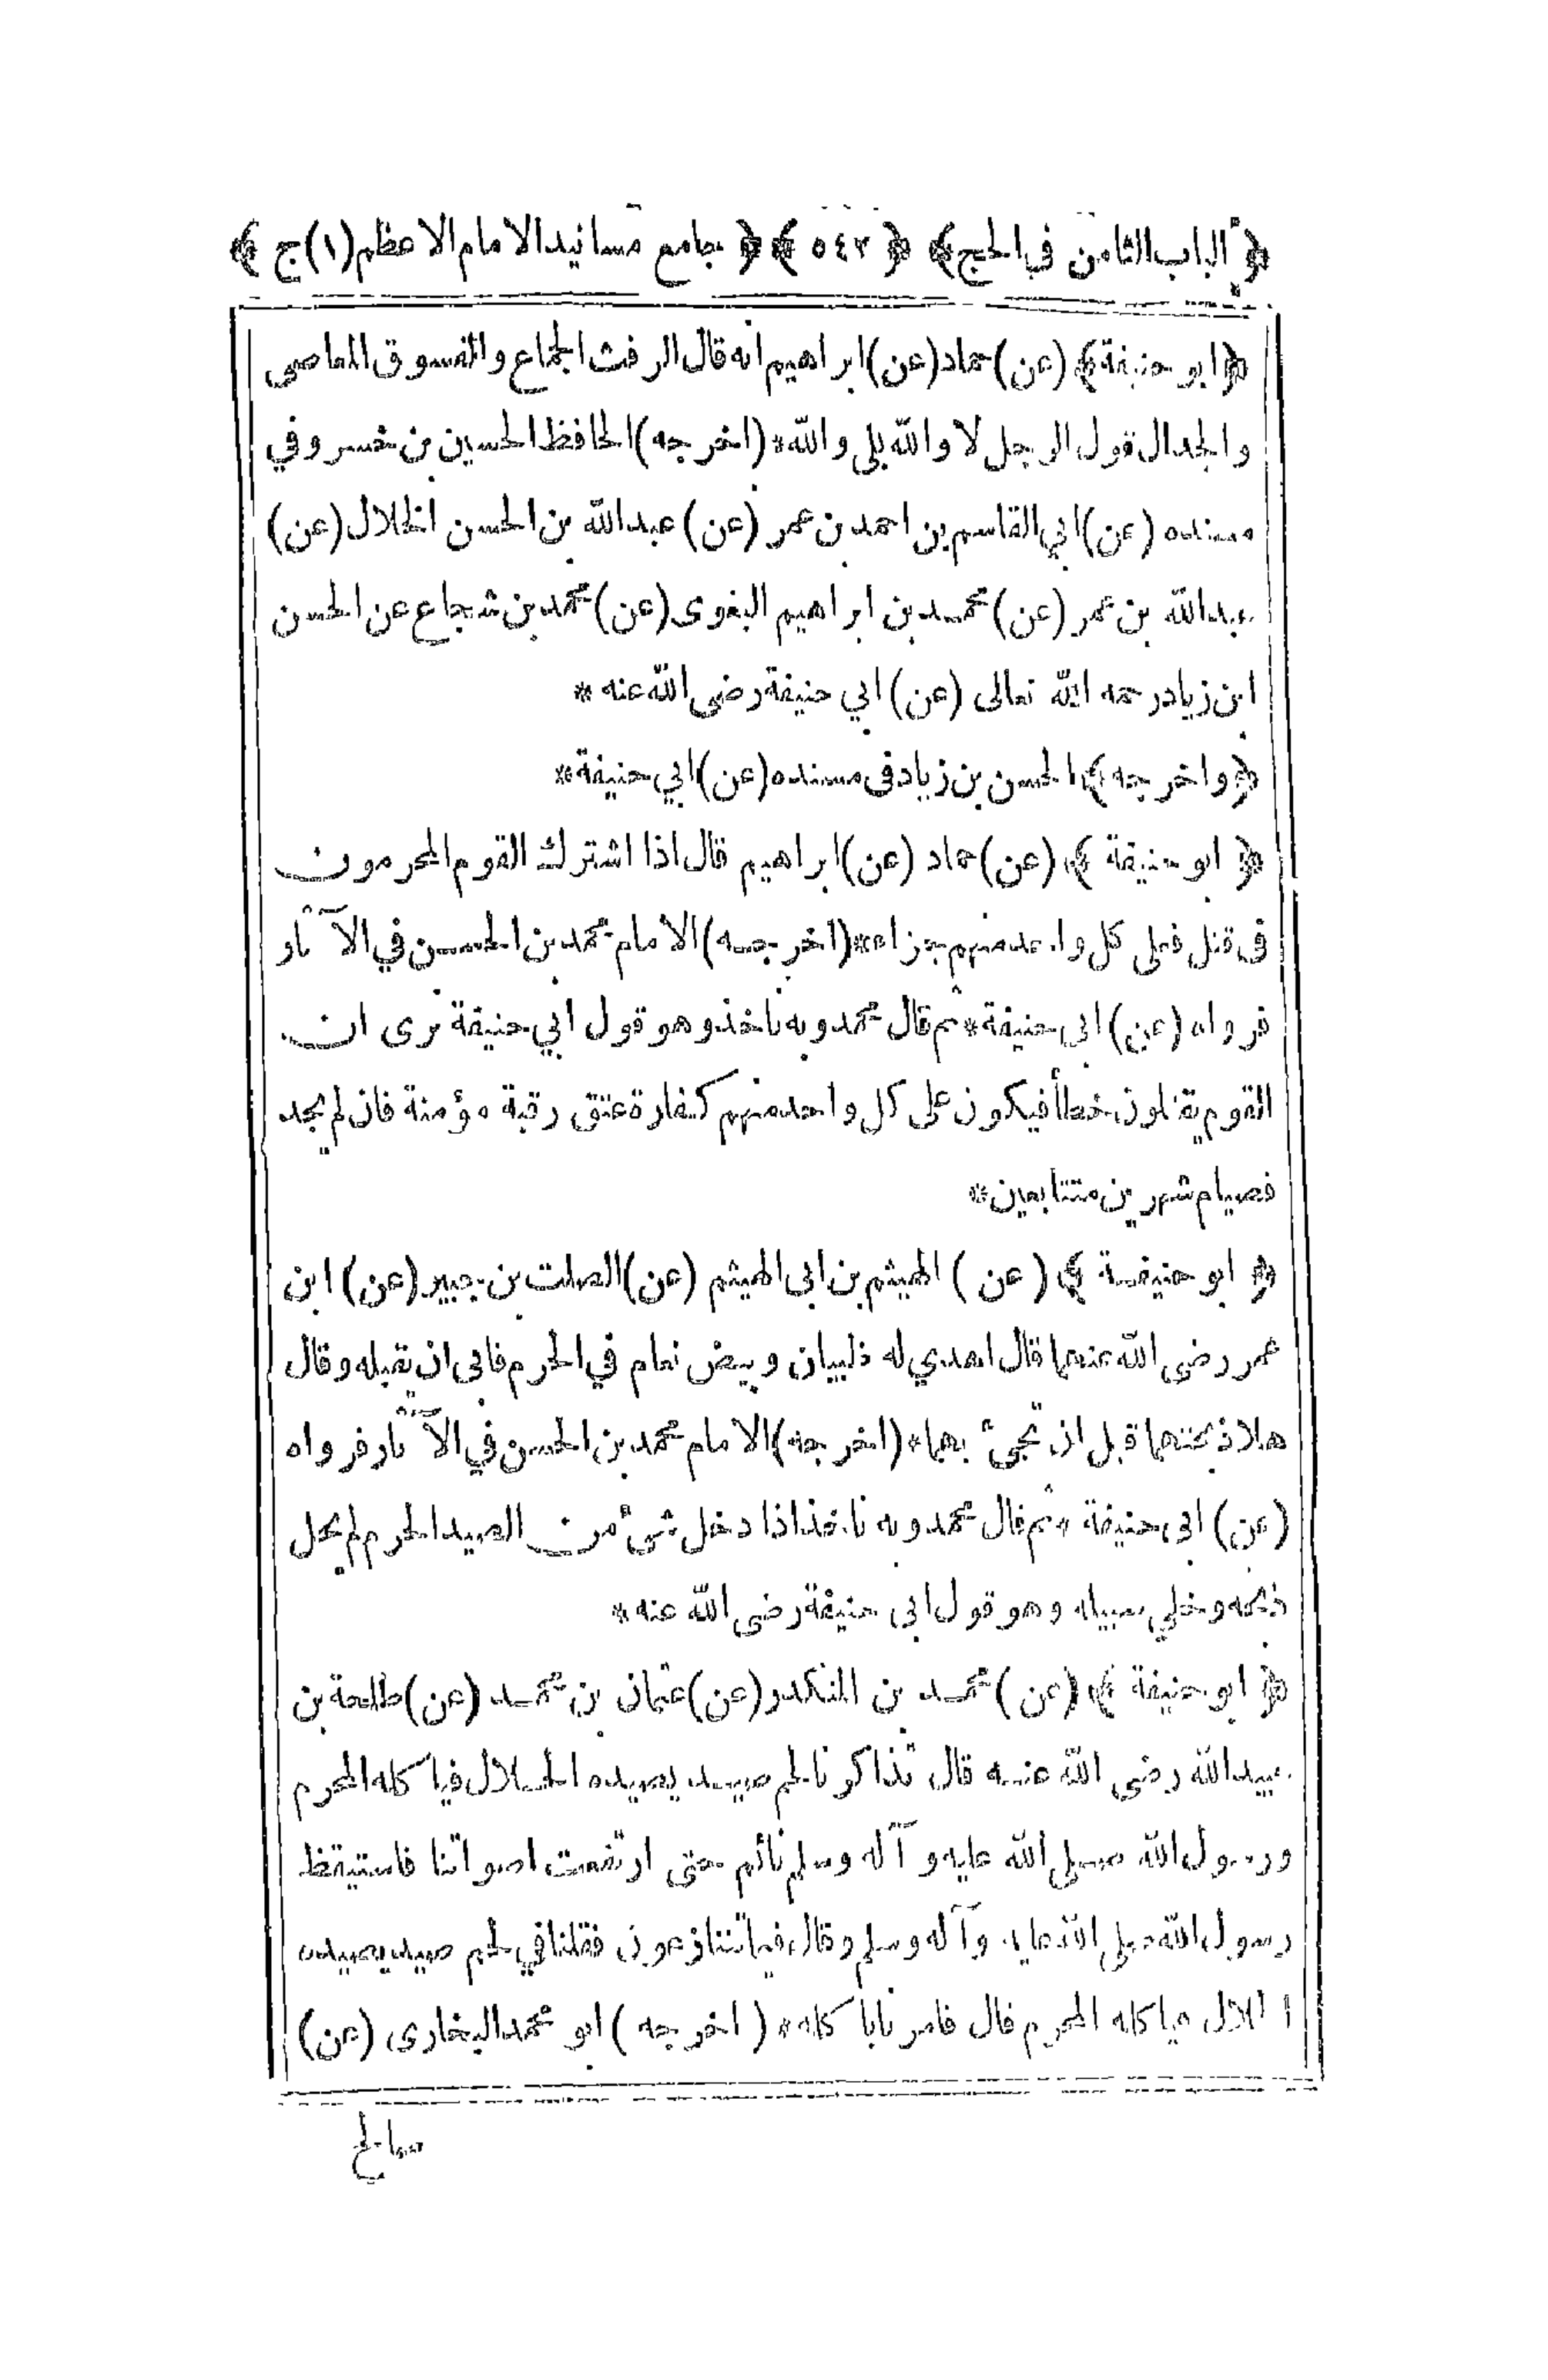 ﴿ الباب الثامن في الحج ﴾ ﴿ ٥٤٢ ﴾ ﴿ جامع مسانيد الامام الاعظم (١) ج ﴾
﴿ ابو حنيفة ﴾ (عن) حماد (عن) ابراهيم انه قال الرفث الجماع والفسوق المعاصى
والجدال قول الرجل لا والله بلى والله * (اخرجه) الحافظ الحسين بن خسرو في
مسنده (عن) ابي القاسم بن احمد بن عمر (عن) عبد الله بن الحسن الخلال (عن)
عبد الله بن عمر (عن) محمد بن ابراهيم البغوى (عن) محمد بن شجاع عن الحسن
ابن زياد رحمه الله تعالى (عن) ابي حنيفة رضى الله عنه *
﴿ واخرجه ﴾ الحسن بن زياد فى مسنده (عن) ابي حنيفة *
﴿ ابو حنيفة ﴾ (عن) حماد (عن) ابراهيم قال اذا اشترك القوم المحرمون
فى قتل فعلى كل واحد منهم جزاء * (اخرجه) الامام محمد بن الحسن في الآثار
فرواه (عن) ابى حنيفة * ثم قال محمد وبه ناخذ وهو قول ابي حنيفة يرى ان
القوم يقتلون خطأ فيكون على كل واحد منهم كفارة عتق رقبة مؤمنة فان لم يجد
فصيام شهرين متتابعين *
﴿ ابو حنيفة ﴾ (عن) الهيثم بن ابى الهيثم (عن) الصلت بن جبير (عن) ابن
عمر رضى الله عنهما قال اهدي له ظبيان وبيض نعام في الحرم فابى ان يقبله وقال
هلا ذبحتهما قبل ان تجيء بهما * (اخرجه) الامام محمد بن الحسن في الآثار فرواه
(عن) ابى حنيفة * ثم قال محمد وبه ناخذ اذا دخل شىء من الصيد الحرم لم يحل
ذبحه وخلي سبيله وهو قول ابى حنيفة رضى الله عنه *
﴿ ابو حنيفة ﴾ (عن) محمد بن المنكدر (عن) عثمان بن محمد (عن) طلحة بن
عبيد الله رضى الله عنه قال تذاكرنا لحم صيد يصيده الحلال فيأكله المحرم
ورسول الله صلى الله عليه وآله وسلم نائم حتى ارتفعت اصواتنا فاستيقظ
رسول الله صلى الله عليه وآله وسلم وقال فيما تتنازعون فقلنا في لحم صيد يصيده
الحلال فيأكله المحرم قال فامرنا باكله * (اخرجه) ابو محمد البخارى (عن)
صالح